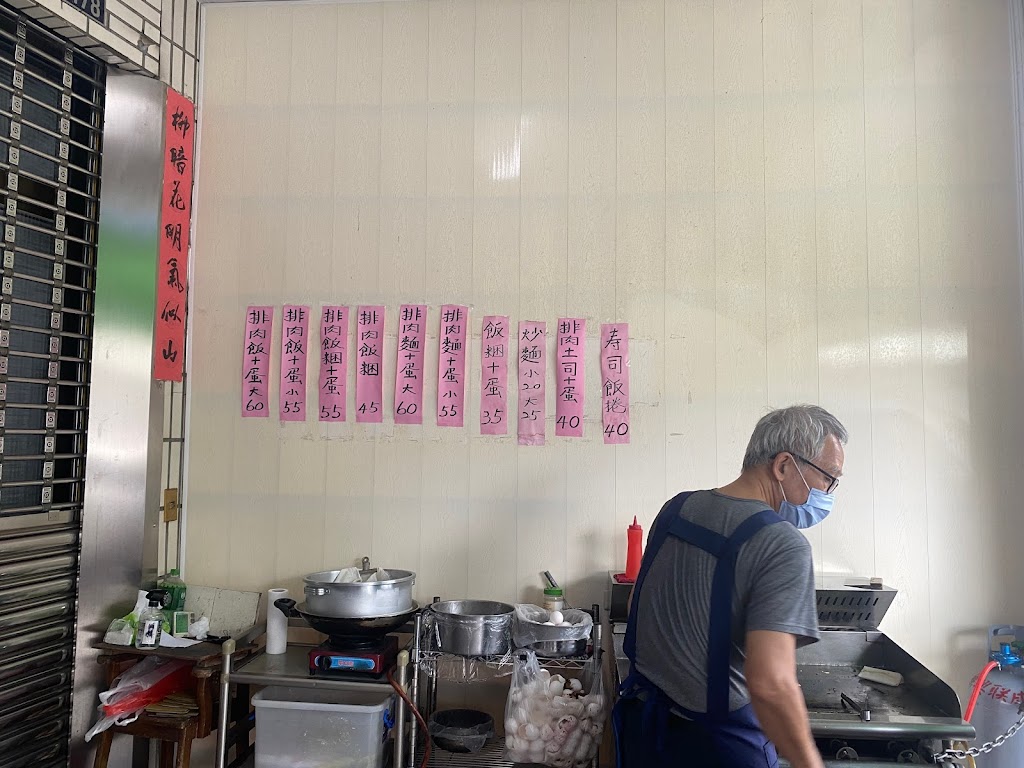 78
柳暗花明氣似山
排肉飯+蛋大60
排肉飯+蛋小55
排肉飯捆+蛋55
排肉飯捆45
排肉麵+蛋大60
排肉麵+蛋小55
飯捆+蛋35
炒麵小20大25
排肉土司+蛋40
寿司飯捲40